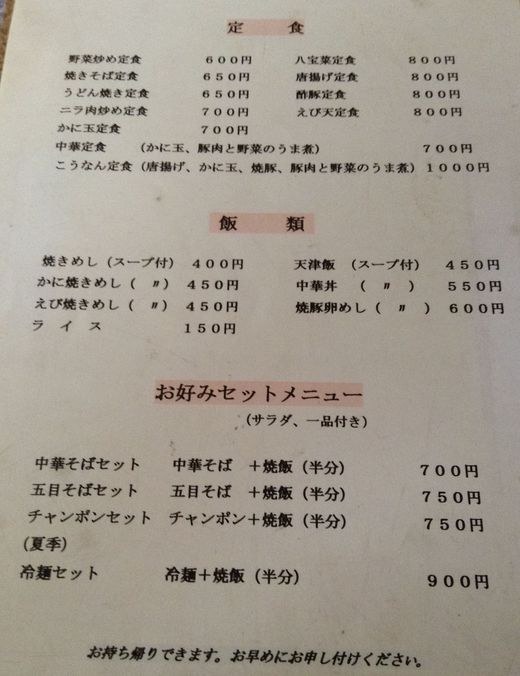 定　食
野菜炒め定食　６００円　八宝菜定食　８００円
焼きそば定食　６５０円　唐揚げ定食　８００円
うどん焼き定食　６５０円　酢豚定食　８００円
ニラ肉炒め定食　７００円　えび天定食　８００円
かに玉定食　７００円
中華定食　（かに玉、豚肉と野菜のうま煮）　７００円
こうなん定食（唐揚げ、かに玉、焼豚、豚肉と野菜のうま煮）１０００円
飯　類
焼きめし（スープ付）　４００円　天津飯　（スープ付）　４５０円
かに焼きめし（　〃）　４５０円　中華丼　（　〃　）　５５０円
えび焼きめし（　〃）　４５０円　焼豚卵めし（　〃　）　６００円
ラ　イ　ス　１５０円
お好みセットメニュー
（サラダ、一品付き）
中華そばセット　中華そば　＋焼飯（半分）　７００円
五目そばセット　五目そば　＋焼飯（半分）　７５０円
チャンポンセット　チャンポン＋焼飯（半分）　７５０円
（夏季）
冷麺セット　冷麺＋焼飯（半分）　９００円
お持ち帰りできます。お早めにお申し付けください。